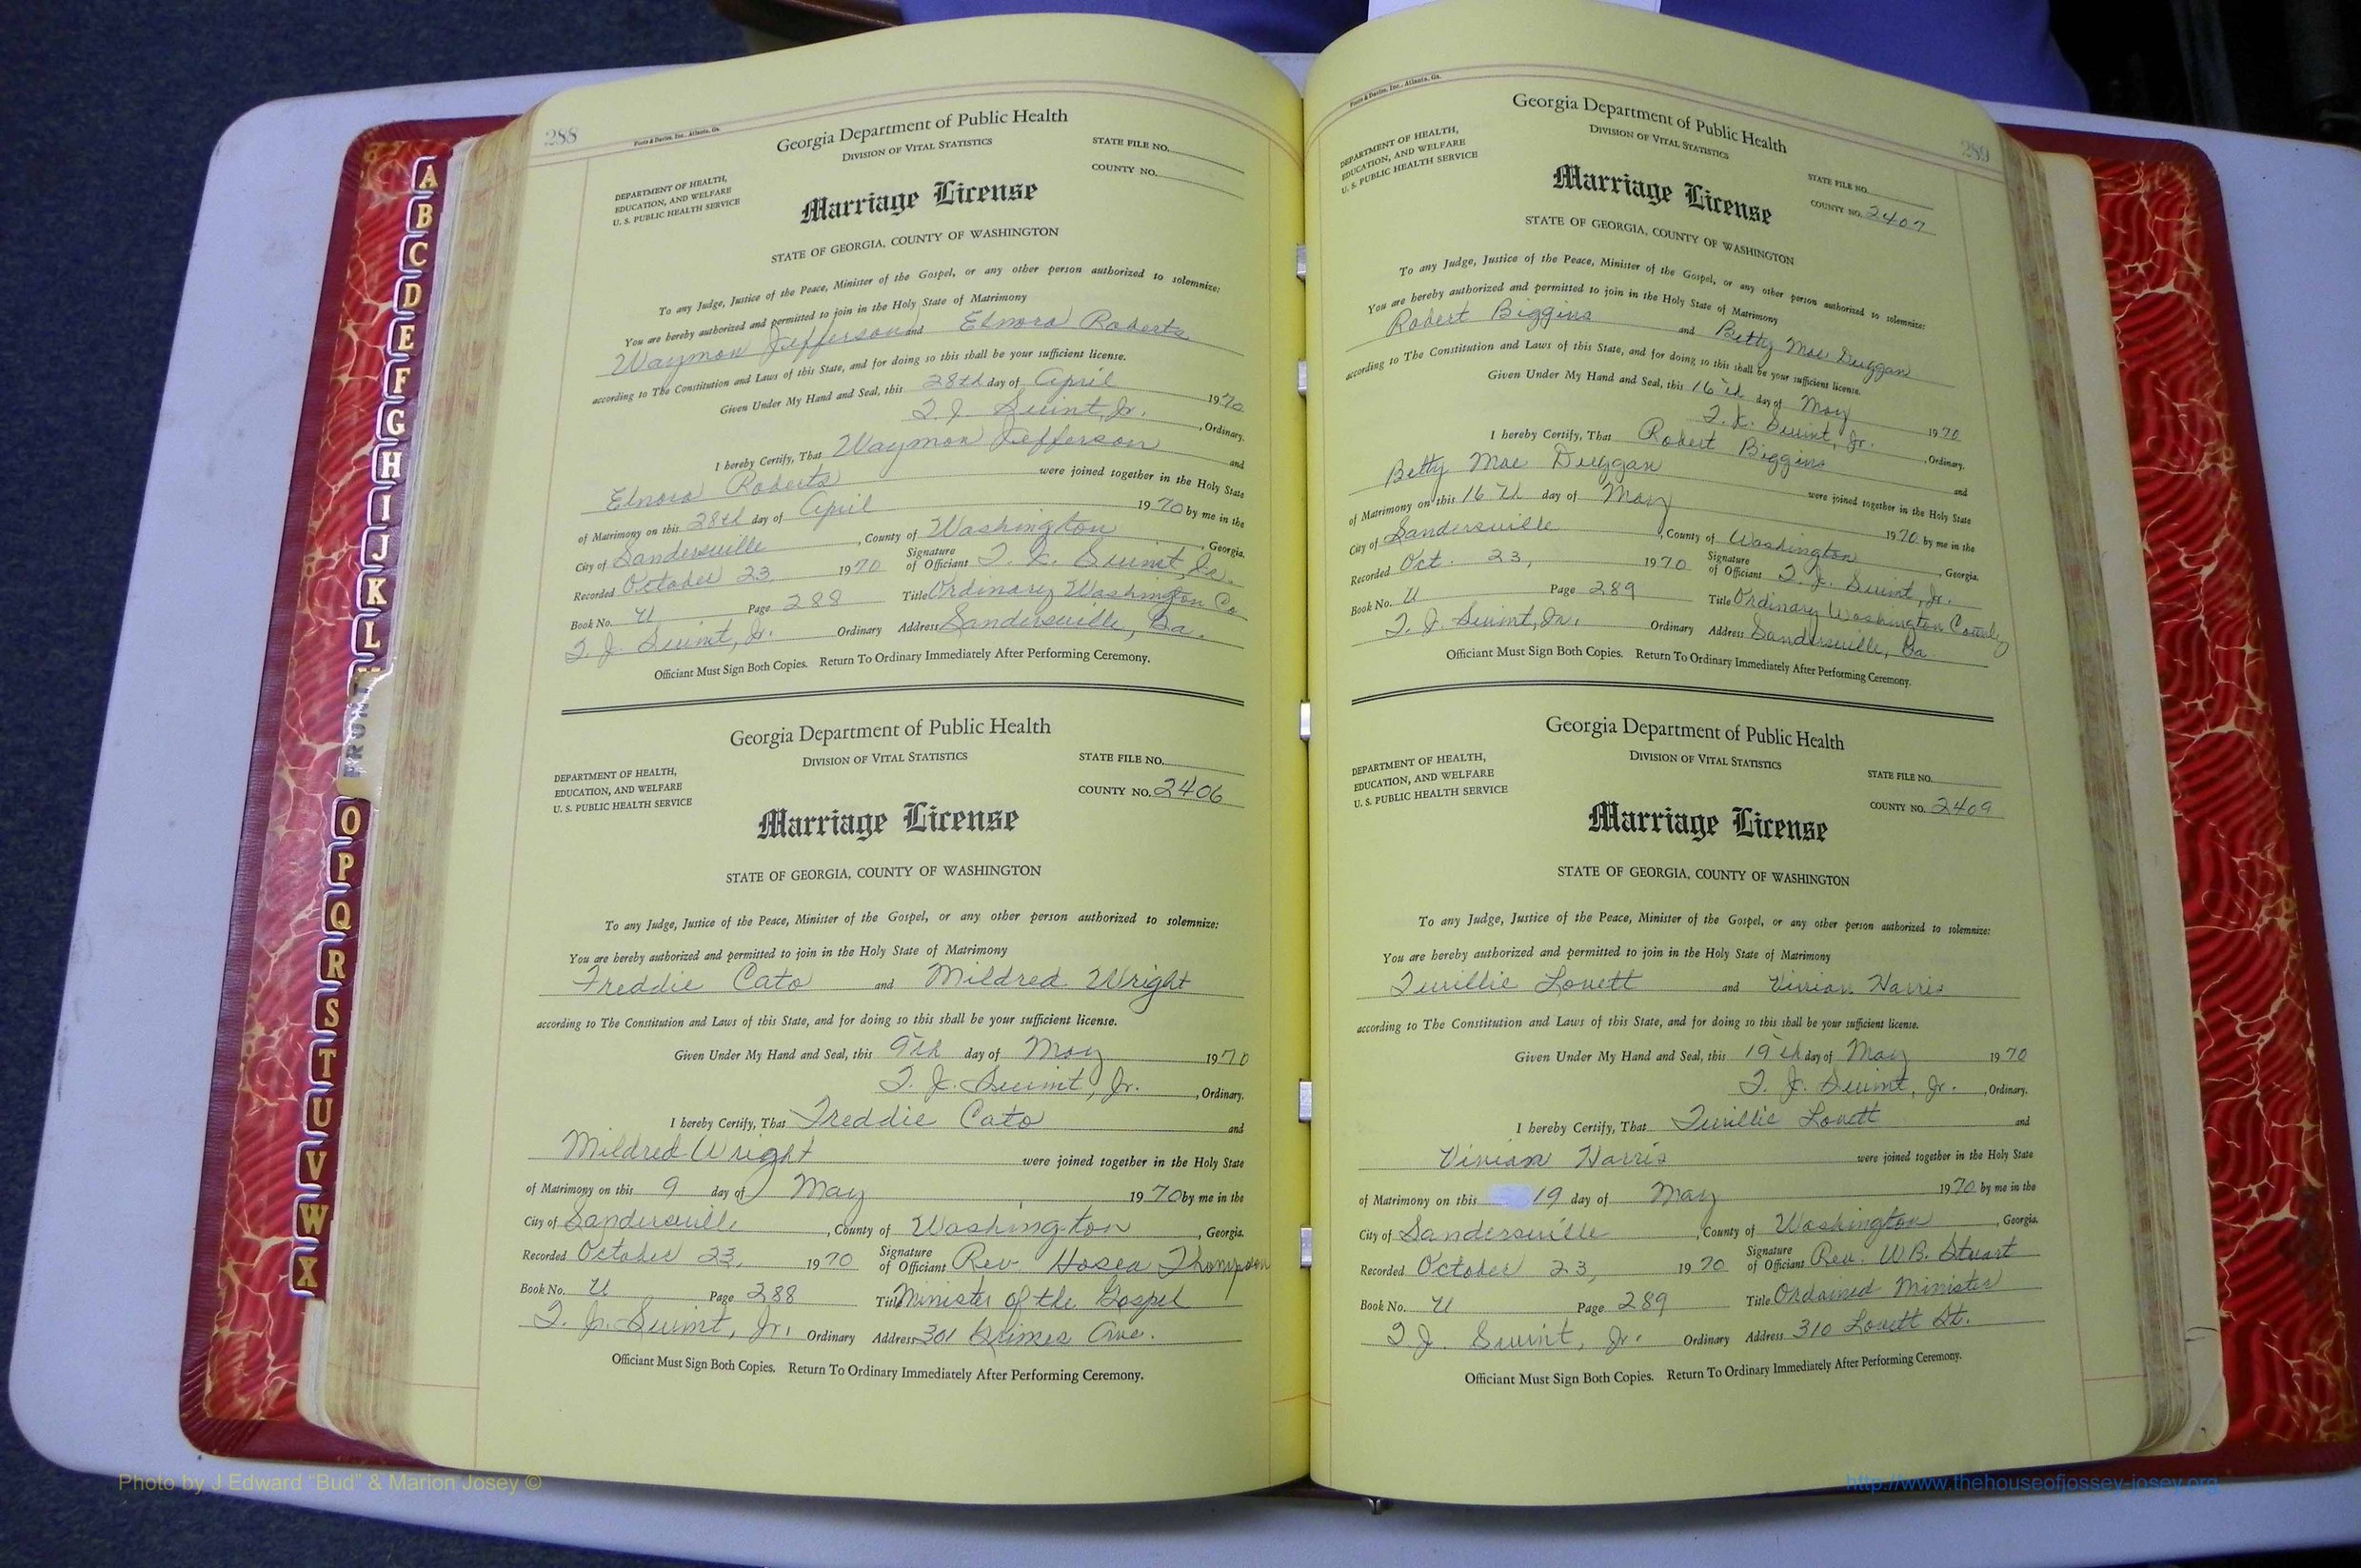 A
B
C
D
E
F
G
H
I
J
K
L
FRONT
O
P
Q
R
S
T
U
V
W
X
288
Foote & Davies, Inc., Atlanta, Ga.
Georgia Department of Public Health
DIVISION OF VITAL STATISTICS
STATE FILE NO.
COUNTY NO.
DEPARTMENT OF HEALTH,
EDUCATION, AND WELFARE
U. S. PUBLIC HEALTH SERVICE
Marriage License
STATE OF GEORGIA, COUNTY OF WASHINGTON
To any Judge, Justice of the Peace, Minister of the Gospel, or any other person authorized to solemnize:
You are hereby authorized and permitted to join in the Holy State of Matrimony
Waymon Jefferson and Elnora Roberts
according to The Constitution and Laws of this State, and for doing so this shall be your sufficient license.
Given Under My Hand and Seal, this 28th day of April 1970
T. J. Swint, Jr. , Ordinary.
I hereby Certify, That Waymon Jefferson and
Elnora Roberts were joined together in the Holy State
of Matrimony on this 28th day of April 1970 by me in the
City of Sandersville , County of Washington , Georgia.
Recorded October 23, 1970 Signature of Officiant T. J. Swint, Jr.
Book No. U Page 288 Title Ordinary Washington Co
T. J. Swint, Jr. Ordinary Address Sandersville, Ga.
Officiant Must Sign Both Copies. Return To Ordinary Immediately After Performing Ceremony.
Georgia Department of Public Health
DIVISION OF VITAL STATISTICS
STATE FILE NO.
COUNTY NO. 2406
DEPARTMENT OF HEALTH,
EDUCATION, AND WELFARE
U. S. PUBLIC HEALTH SERVICE
Marriage License
STATE OF GEORGIA, COUNTY OF WASHINGTON
To any Judge, Justice of the Peace, Minister of the Gospel, or any other person authorized to solemnize:
You are hereby authorized and permitted to join in the Holy State of Matrimony
Freddie Cato and Mildred Wright
according to The Constitution and Laws of this State, and for doing so this shall be your sufficient license.
Given Under My Hand and Seal, this 9th day of May 1970
T. J. Swint, Jr. , Ordinary.
I hereby Certify, That Freddie Cato and
Mildred Wright were joined together in the Holy State
of Matrimony on this 9 day of May 1970 by me in the
City of Sandersville , County of Washington , Georgia.
Recorded October 23, 1970 Signature of Officiant Rev. Hosea Thompson
Book No. U Page 288 Title Minister of the Gospel
T. J. Swint, Jr. Ordinary Address 301 Ave.
Officiant Must Sign Both Copies. Return To Ordinary Immediately After Performing Ceremony.
289
Foote & Davies, Inc., Atlanta, Ga.
Georgia Department of Public Health
DIVISION OF VITAL STATISTICS
DEPARTMENT OF HEALTH,
EDUCATION, AND WELFARE
U. S. PUBLIC HEALTH SERVICE
STATE FILE NO.
COUNTY NO. 2407
Marriage License
STATE OF GEORGIA, COUNTY OF WASHINGTON
To any Judge, Justice of the Peace, Minister of the Gospel, or any other person authorized to solemnize:
You are hereby authorized and permitted to join in the Holy State of Matrimony
Robert Biggins and Betty Mae Duggan
according to The Constitution and Laws of this State, and for doing so this shall be your sufficient license.
Given Under My Hand and Seal, this 16th day of May 1970
T. J. Swint, Jr. , Ordinary.
I hereby Certify, That Robert Biggins and
Betty Mae Duggan were joined together in the Holy State
of Matrimony on this 16th day of May 1970 by me in the
City of Sandersville , County of Washington , Georgia.
Recorded Oct. 23, 1970 Signature of Officiant T. J. Swint, Jr.
Book No. U Page 289 Title Ordinary Washington County
T. J. Swint, Jr. Ordinary Address Sandersville, Ga
Officiant Must Sign Both Copies. Return To Ordinary Immediately After Performing Ceremony.
Georgia Department of Public Health
DIVISION OF VITAL STATISTICS
DEPARTMENT OF HEALTH,
EDUCATION, AND WELFARE
U. S. PUBLIC HEALTH SERVICE
STATE FILE NO.
COUNTY NO. 2409
Marriage License
STATE OF GEORGIA, COUNTY OF WASHINGTON
To any Judge, Justice of the Peace, Minister of the Gospel, or any other person authorized to solemnize:
You are hereby authorized and permitted to join in the Holy State of Matrimony
Lovett and Vivian Harris
according to The Constitution and Laws of this State, and for doing so this shall be your sufficient license.
Given Under My Hand and Seal, this 19th day of May 1970
T. J. Swint, Jr. , Ordinary.
I hereby Certify, That Lovett and
Vivian Harris were joined together in the Holy State
of Matrimony on this 19 day of May 1970 by me in the
City of Sandersville , County of Washington , Georgia.
Recorded October 23, 1970 Signature of Officiant Rev. W.B. Stuart
Book No. U Page 289 Title Ordained Minister
T. J. Swint, Jr. Ordinary Address 310 Lovett St.
Officiant Must Sign Both Copies. Return To Ordinary Immediately After Performing Ceremony.
Photo by J Edward "Bud" & Marion Josey ©
http://www.thehouseofjossey-josey.org